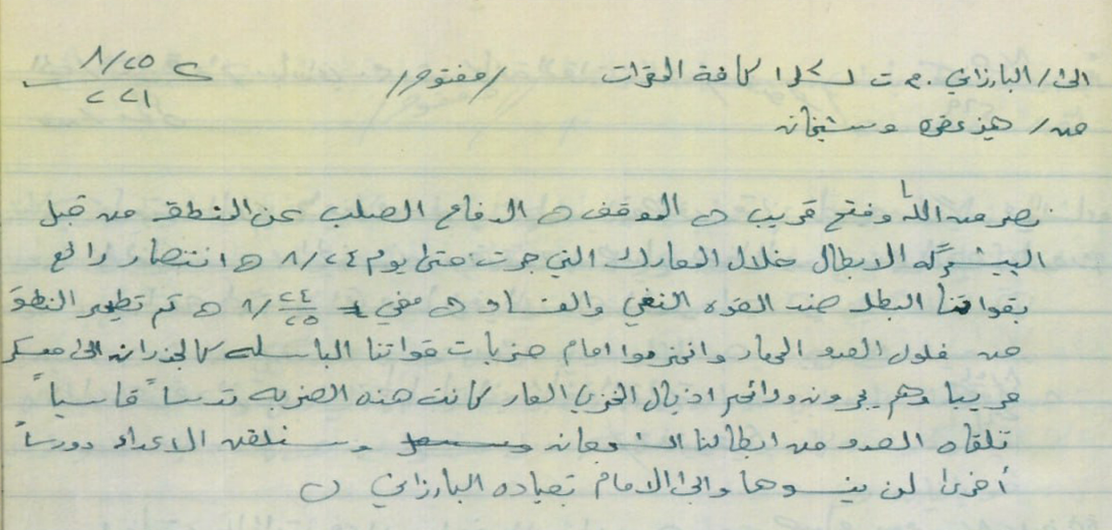 الى/ البارزاني . م ت ل كافة المقرات /مفتوح/ ٨/٢٥
٢٢١
من/ هيز عقره وشيخان
نصر من الله وفتح قريب الموقف الدفاع الصلب عن المنطقة من قبل
البيشمركه الابطال خلال المعارك التي جرت حتى يوم ٨/٢٤ انتصار رائع
بقواتنا البطلة ضد القوه البغي والفساد في ٨/٢٤ ٢٥ تم تطهير المنطقة
من فلول العدو المجار وانهزموا امام ضربات قواتنا الباسله كالجرذان الى معسكر
مريبا وهم يجرون ورائهم اذيال الخزي العار كانت هذه الضربه درساً قاسياً
تلقاه العدو من ابطالنا الشجعان وسنلقن الاعداء دروساً
أخرى لن ينسوها والى الامام بقياده البارزاني